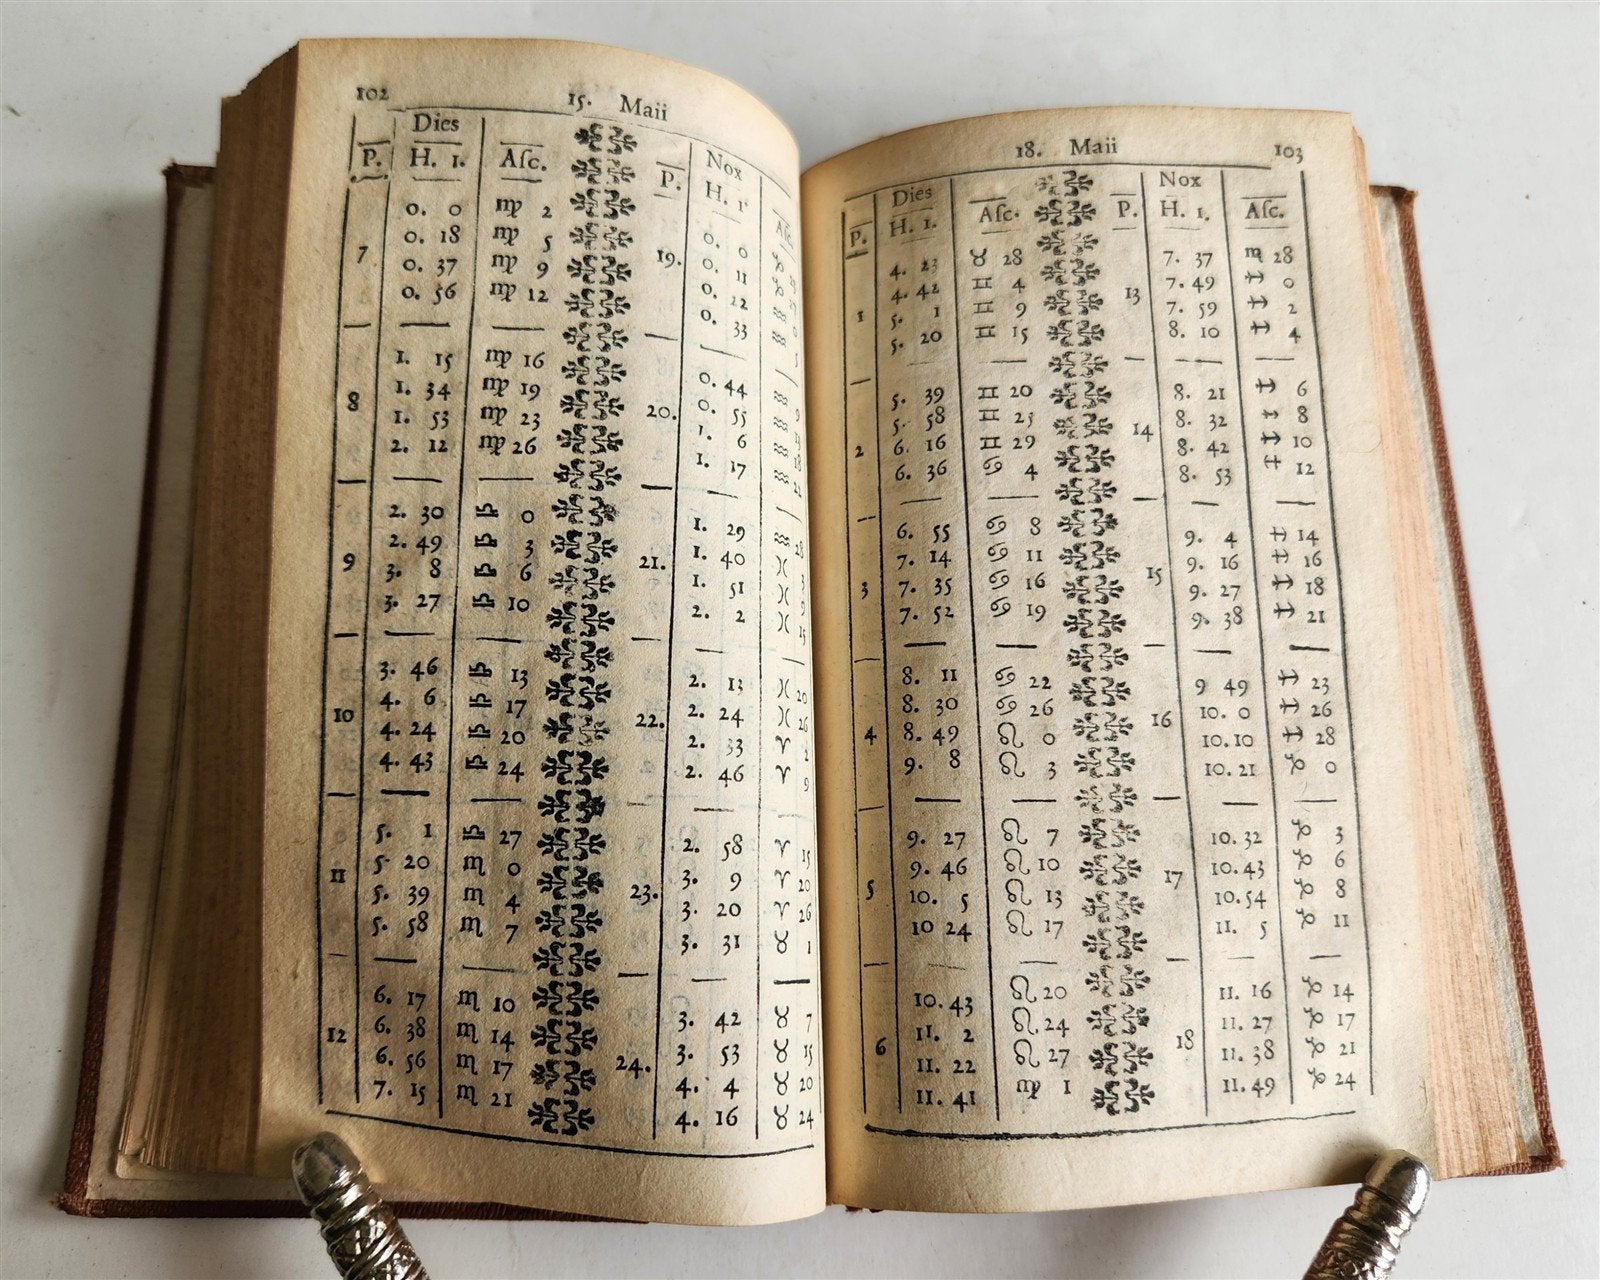 102 15. Maii
Dies Nox
P. H. I. Aſc. P. H. I. Aſc.
0. 0 ♍ 2 0. 0 ♑
7 0. 18 ♍ 5 19. 0. 11 ♑
0. 37 ♍ 9 0. 22 ♒
0. 56 ♍ 12 0. 33 ♒
1. 15 ♍ 16 0. 44 ♒
8 1. 34 ♍ 19 20. 0. 55 ♒
1. 53 ♍ 23 1. 6 ♒ 18
2. 12 ♍ 26 1. 17 ♒
2. 30 ♎ 0 1. 29 ♒ 28
9 2. 49 ♎ 3 21. 1. 40 ♓ 3
3. 8 ♎ 6 1. 51 ♓ 9
3. 27 ♎ 10 2. 2 ♓ 15
3. 46 ♎ 13 2. 13 ♓ 20
10 4. 6 ♎ 17 22. 2. 24 ♓ 26
4. 24 ♎ 20 2. 33 ♈ 2
4. 43 ♎ 24 2. 46 ♈ 9
5. 1 ♎ 27 2. 58 ♈ 15
11 5. 20 ♏ 0 23. 3. 9 ♈ 20
5. 39 ♏ 4 3. 20 ♈ 26
5. 58 ♏ 7 3. 31 ♉ 1
6. 17 ♏ 10 3. 42 ♉ 7
12 6. 38 ♏ 14 24. 3. 53 ♉ 15
6. 56 ♏ 17 4. 4 ♉ 20
7. 15 ♏ 21 4. 16 ♉ 24
18. Maii 103
Dies Nox
P. H. I. Aſc. P. H. I. Aſc.
4. 23 ♉ 28 7. 37 ♏ 28
1 4. 42 ♊ 4 13 7. 49 ♐ 0
5. 1 ♊ 9 7. 59 ♐ 2
5. 20 ♊ 15 8. 10 ♐ 4
5. 39 ♊ 20 8. 21 ♐ 6
2 5. 58 ♊ 25 14 8. 32 ♐ 8
6. 16 ♊ 29 8. 42 ♐ 10
6. 36 ♋ 4 8. 53 ♐ 12
6. 55 ♋ 8 9. 4 ♐ 14
3 7. 14 ♋ 11 15 9. 16 ♐ 16
7. 35 ♋ 16 9. 27 ♐ 18
7. 52 ♋ 19 9. 38 ♐ 21
8. 11 ♋ 22 9 49 ♐ 23
4 8. 30 ♋ 26 16 10. 0 ♐ 26
8. 49 ♌ 0 10. 10 ♐ 28
9. 8 ♌ 3 10. 21 ♑ 0
9. 27 ♌ 7 10. 32 ♑ 3
5 9. 46 ♌ 10 17 10. 43 ♑ 6
10. 5 ♌ 13 10. 54 ♑ 8
10 24 ♌ 17 11. 5 ♑ 11
10. 43 ♌ 20 11. 16 ♑ 14
6 11. 2 ♌ 24 18 11. 27 ♑ 17
11. 22 ♌ 27 11. 38 ♑ 21
11. 41 ♍ 1 11. 49 ♑ 24